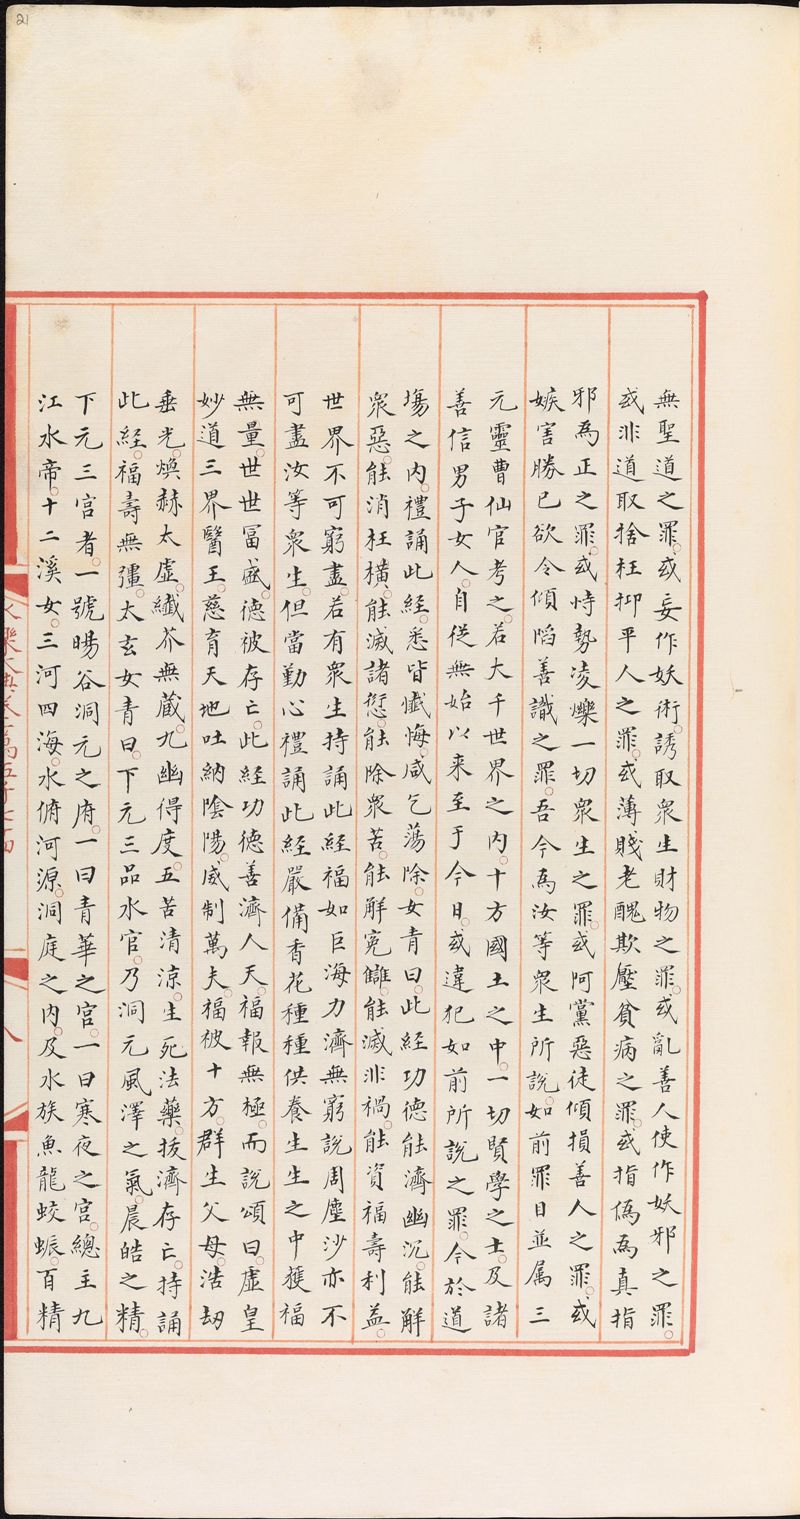 21
無聖道之罪。或妄作妖術。誘取衆生財物之罪。或亂善人使作妖邪之罪。
或非道取捨枉抑平人之罪。或薄賤老醜欺壓貧病之罪。或指僞為真指
邪為正之罪。或恃勢凌爍一切衆生之罪。或阿黨惡徒傾損善人之罪。或
嫉害勝已欲令傾陷善識之罪。吾今為汝等衆生所說。如前罪目並属三
元靈曹仙官考之。若大千世界之内。十方國土之中。一切賢學之士。及諸
善信男子女人。自從無始以来至于今日。或違犯如前所說之罪。今於道
塲之内。禮誦此經。悉皆懺悔。咸乞蕩除。女青曰。此經功德能濟幽沉。能解
衆惡。能消枉橫。能滅諸愆。能除衆苦。能解寃讎。能滅非禍。能資福壽利益。
世界不可窮盡。若有衆生持誦此經福如巨海力濟無窮說周塵沙亦不
可盡汝等衆生。但當勤心禮誦此經嚴備香花種種供養生生之中獲福
無量。世世冨盛。德被存亡。此經功德善濟人天。福報無極。而說頌曰。虛皇
妙道三界醫王。慈育天地吐納陰陽。威制萬夫。福彼十方。群生父母。浩刼
垂光。煥赫太虛。纎芥無藏。九幽得度。五苦清涼。生死法藥。拔濟存亡。持誦
此經。福壽無彊。太玄女青曰。下元三品水官。乃洞元風澤之氣。晨皓之精。
下元三官者。一號暘谷洞元之府。一曰青華之宫。一曰寒夜之宫。總主九
江水帝。十二溪女。三河四海。水俯河源。洞庭之内。及水族魚龍蛟蜃。百精